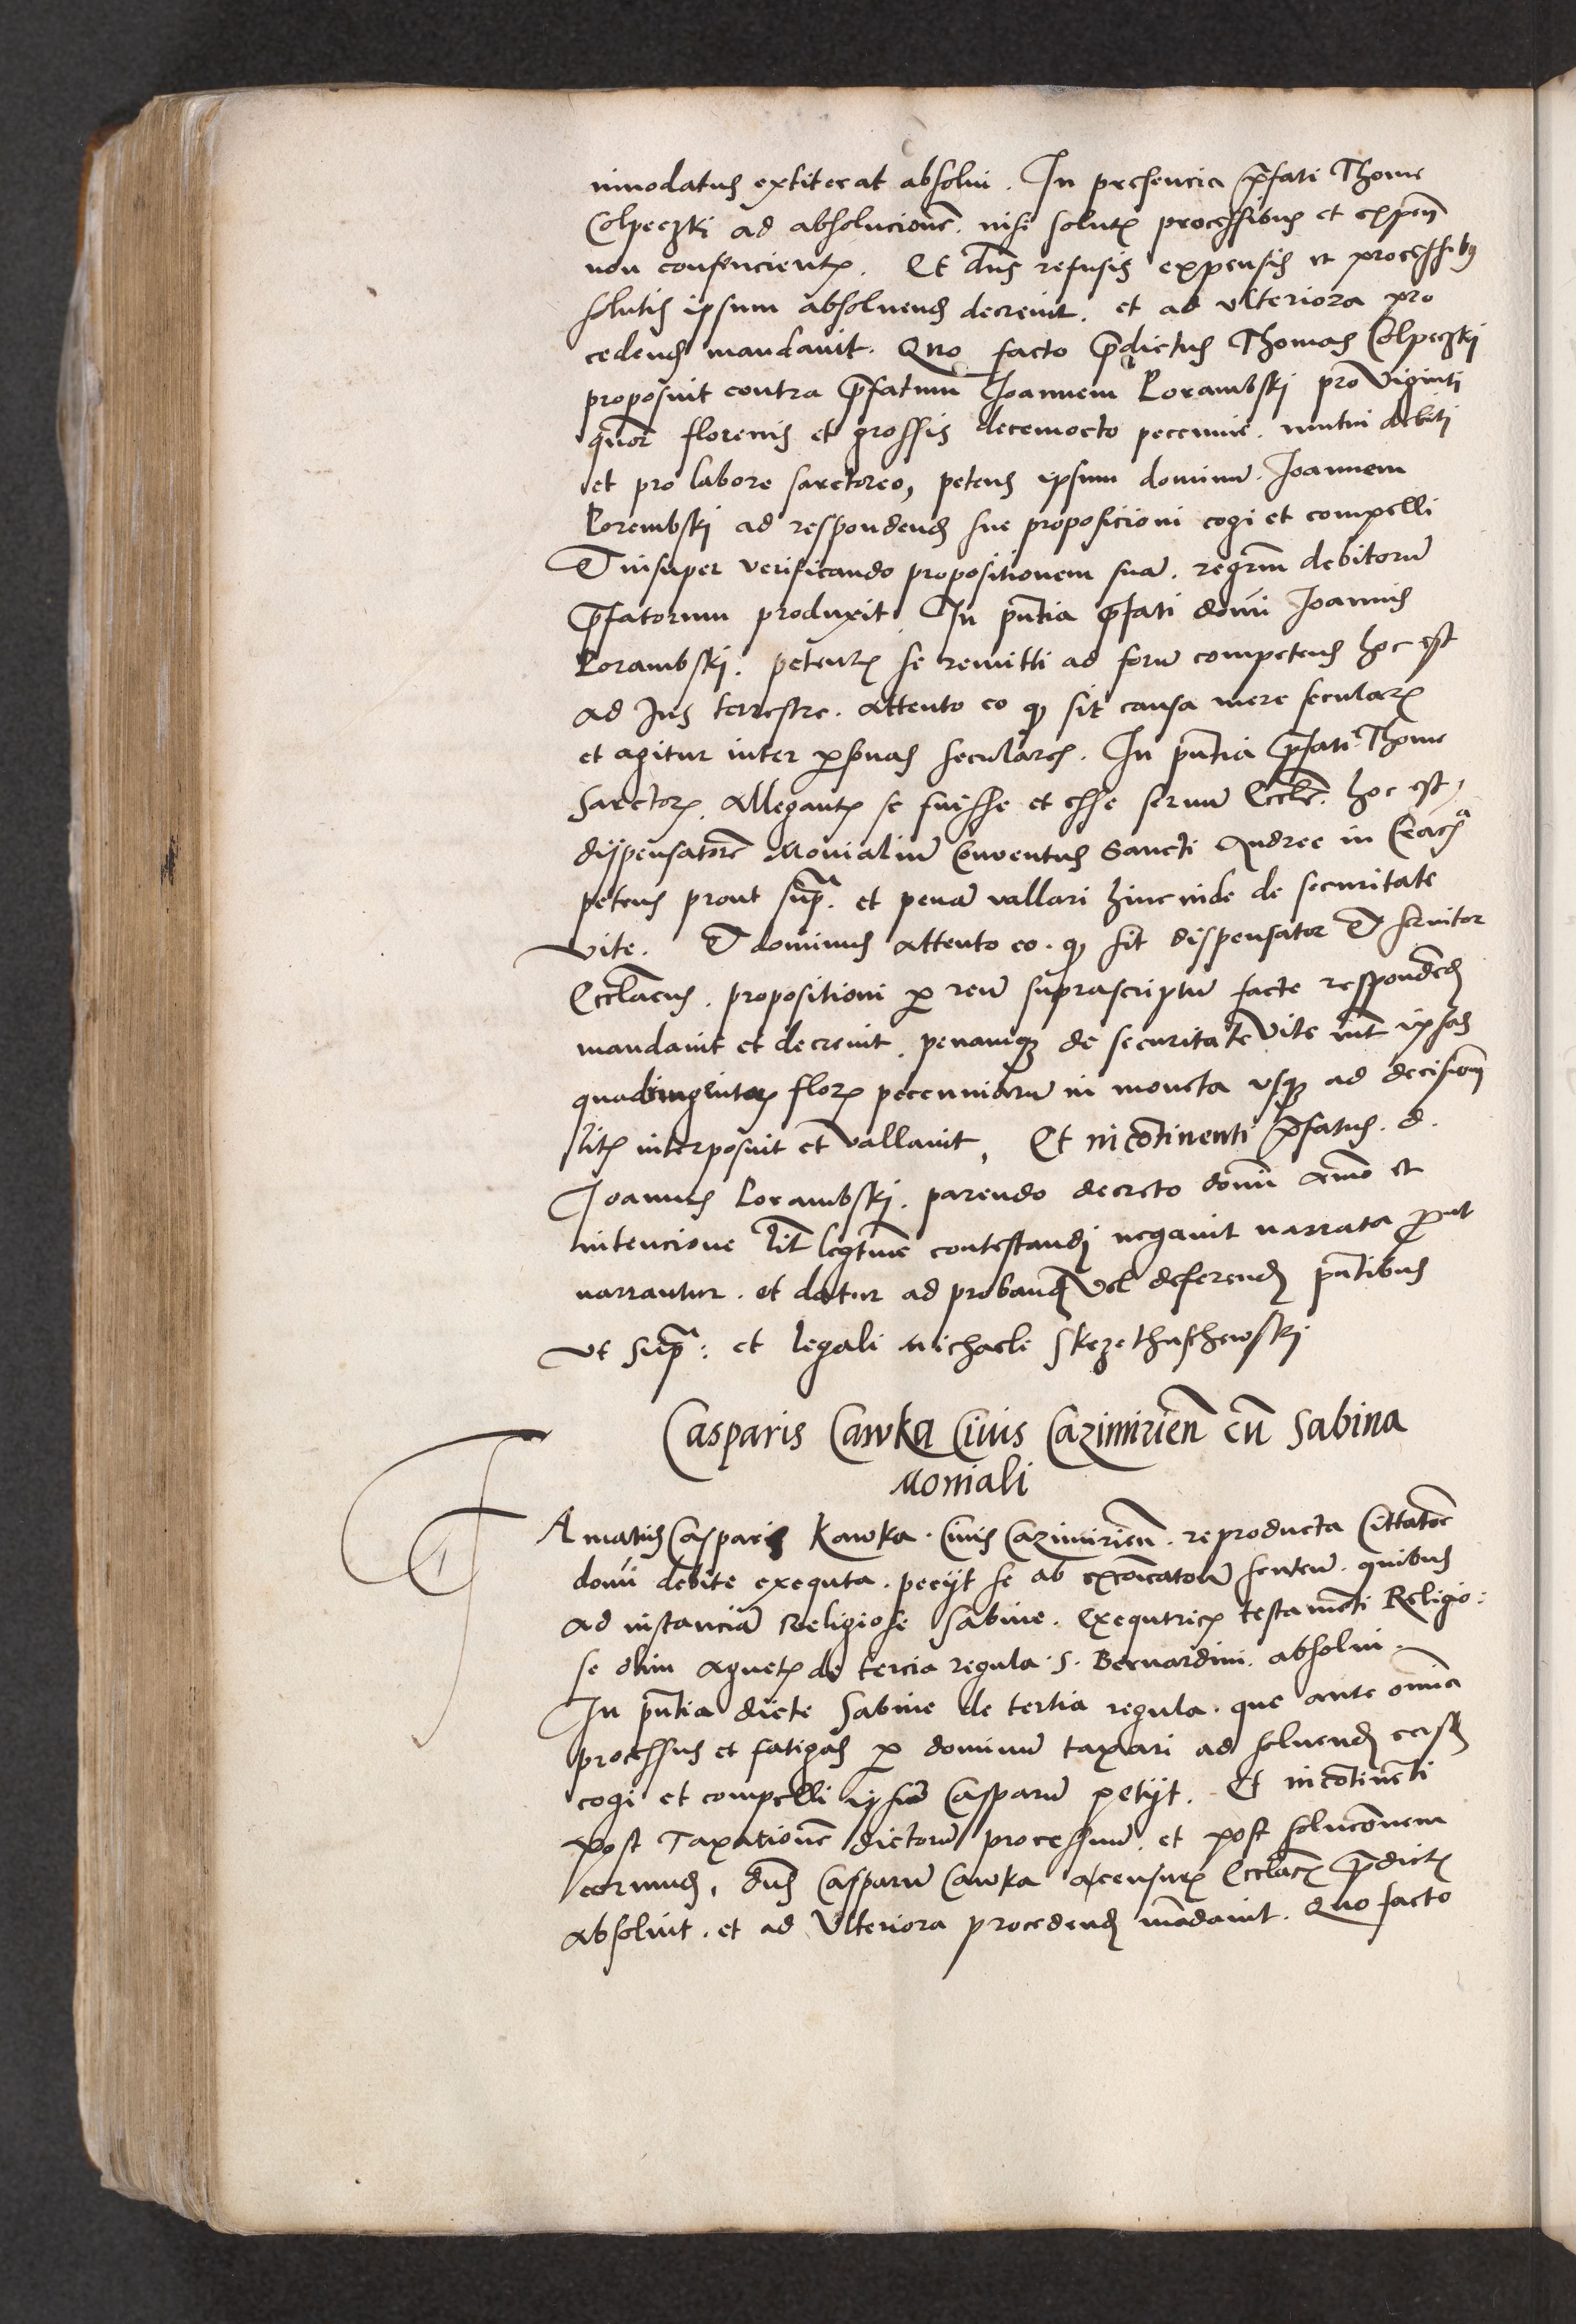 innodatus extiterat absolui. In presencia p̄fati Thome
Colpeczki ad absolucionē. nisi solutꝭ processibus et expen̄
non consencientꝭ. Et dn̄s refusis expensis et processibꝯ
solutis ipsum absoluend decreuit. et ad vlteriora pro
cedend mandauit. Quo facto p̄dictus Thomas Colpeczki
proposuit contra p̄fatum Joannem Lorambski pro viginti
quor florenis et grossis decemocto peccunie. mutui debiti
et pro labore sarctoreo, petens ipsum dominū Joannem
Lorembski ad respondend sue proposicioni cogi et compelli
Et insuper verificando propositionem suā. regrm̄ debitorū
p̄fatorum produxit. In pn̄tia p̄fati domī Joannis
Lorambskj. petentꝭ se remitti ad forū competens hoc est
ad Jus terrestre. attento eo qꝫ sit causa mere secularꝭ
et agitur inter ꝑsonas seculares. In pn̄tia p̄fati Thome
Sarctorꝭ. Allegantꝭ se fuisse et esse seruū Eccle. hoc est
dispensatorē Monialiū Conuentus Sancti Andree in Crac̄
petens prout sup̄a. et penā vallari hincinde de securitate
vite. Et dominus attento eo. qꝫ sit dispensator Et seruitor
Ecclācus. propositioni ꝑ reū suprascriptū facte respondēd
mandauit et decreuit. penamqꝫ de securitate vite int̄ ipsas
quadringintorꝭ florꝭ pecuniarū in moneta vsqꝫ ad decisionē
litꝭ interposuit et vallauit, Et incōtinenti p̄fatus. d.
Joannes Lorambskj. parendo decreto domī animo et
intencione lit̄ legtime contestandj negauit narrata ꝓut
narrantur. et datur ad proband vel deferend pn̄tibus
vt Sup̄a: et legali Michaele Skrzethuschewskj
Casparis Cawka Ciuis Cazimirien̄ cū Sabina
Moniali
Famatus Casparis Kawka. Ciuis Cazimirien̄. reproducta Cittatōe
domī debite exequta. peciit se ab excōicatorū sentenc. quibus
ad instanciā Religiose Sabine. Exequtricꝭ testamēti Religio:
se olim Agnetꝭ de tercia regula. S. Bernardini. absolui.
In pn̄tia dicte Sabine de tertia regula. que ante omnia
processus et fatigas ꝑ dominū taxari ad soluend eosd
cogi et compelli ipsum Casparū petijt. Et incōtinēti
post Taxationē dictorū processuū. et post solucōnem
eorundē, dn̄s Casparū Cawka a censurꝭ Ecclacꝭ p̄dictꝭ
absoluit. et ad Vlteriora procedend mādauit. Quo facto